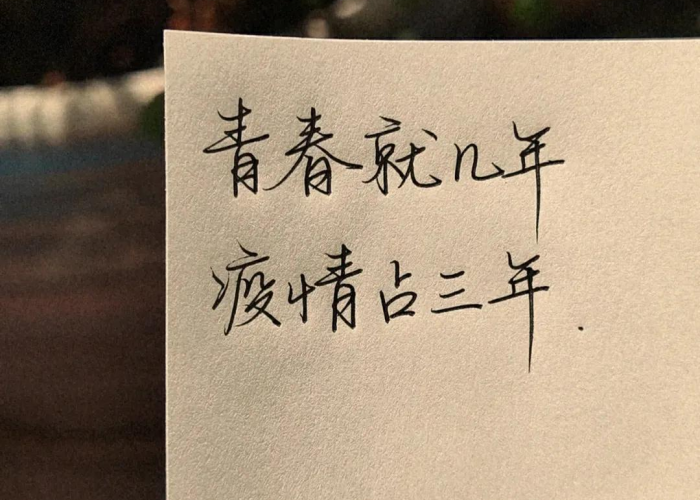 青春就几年
疫情占三年.